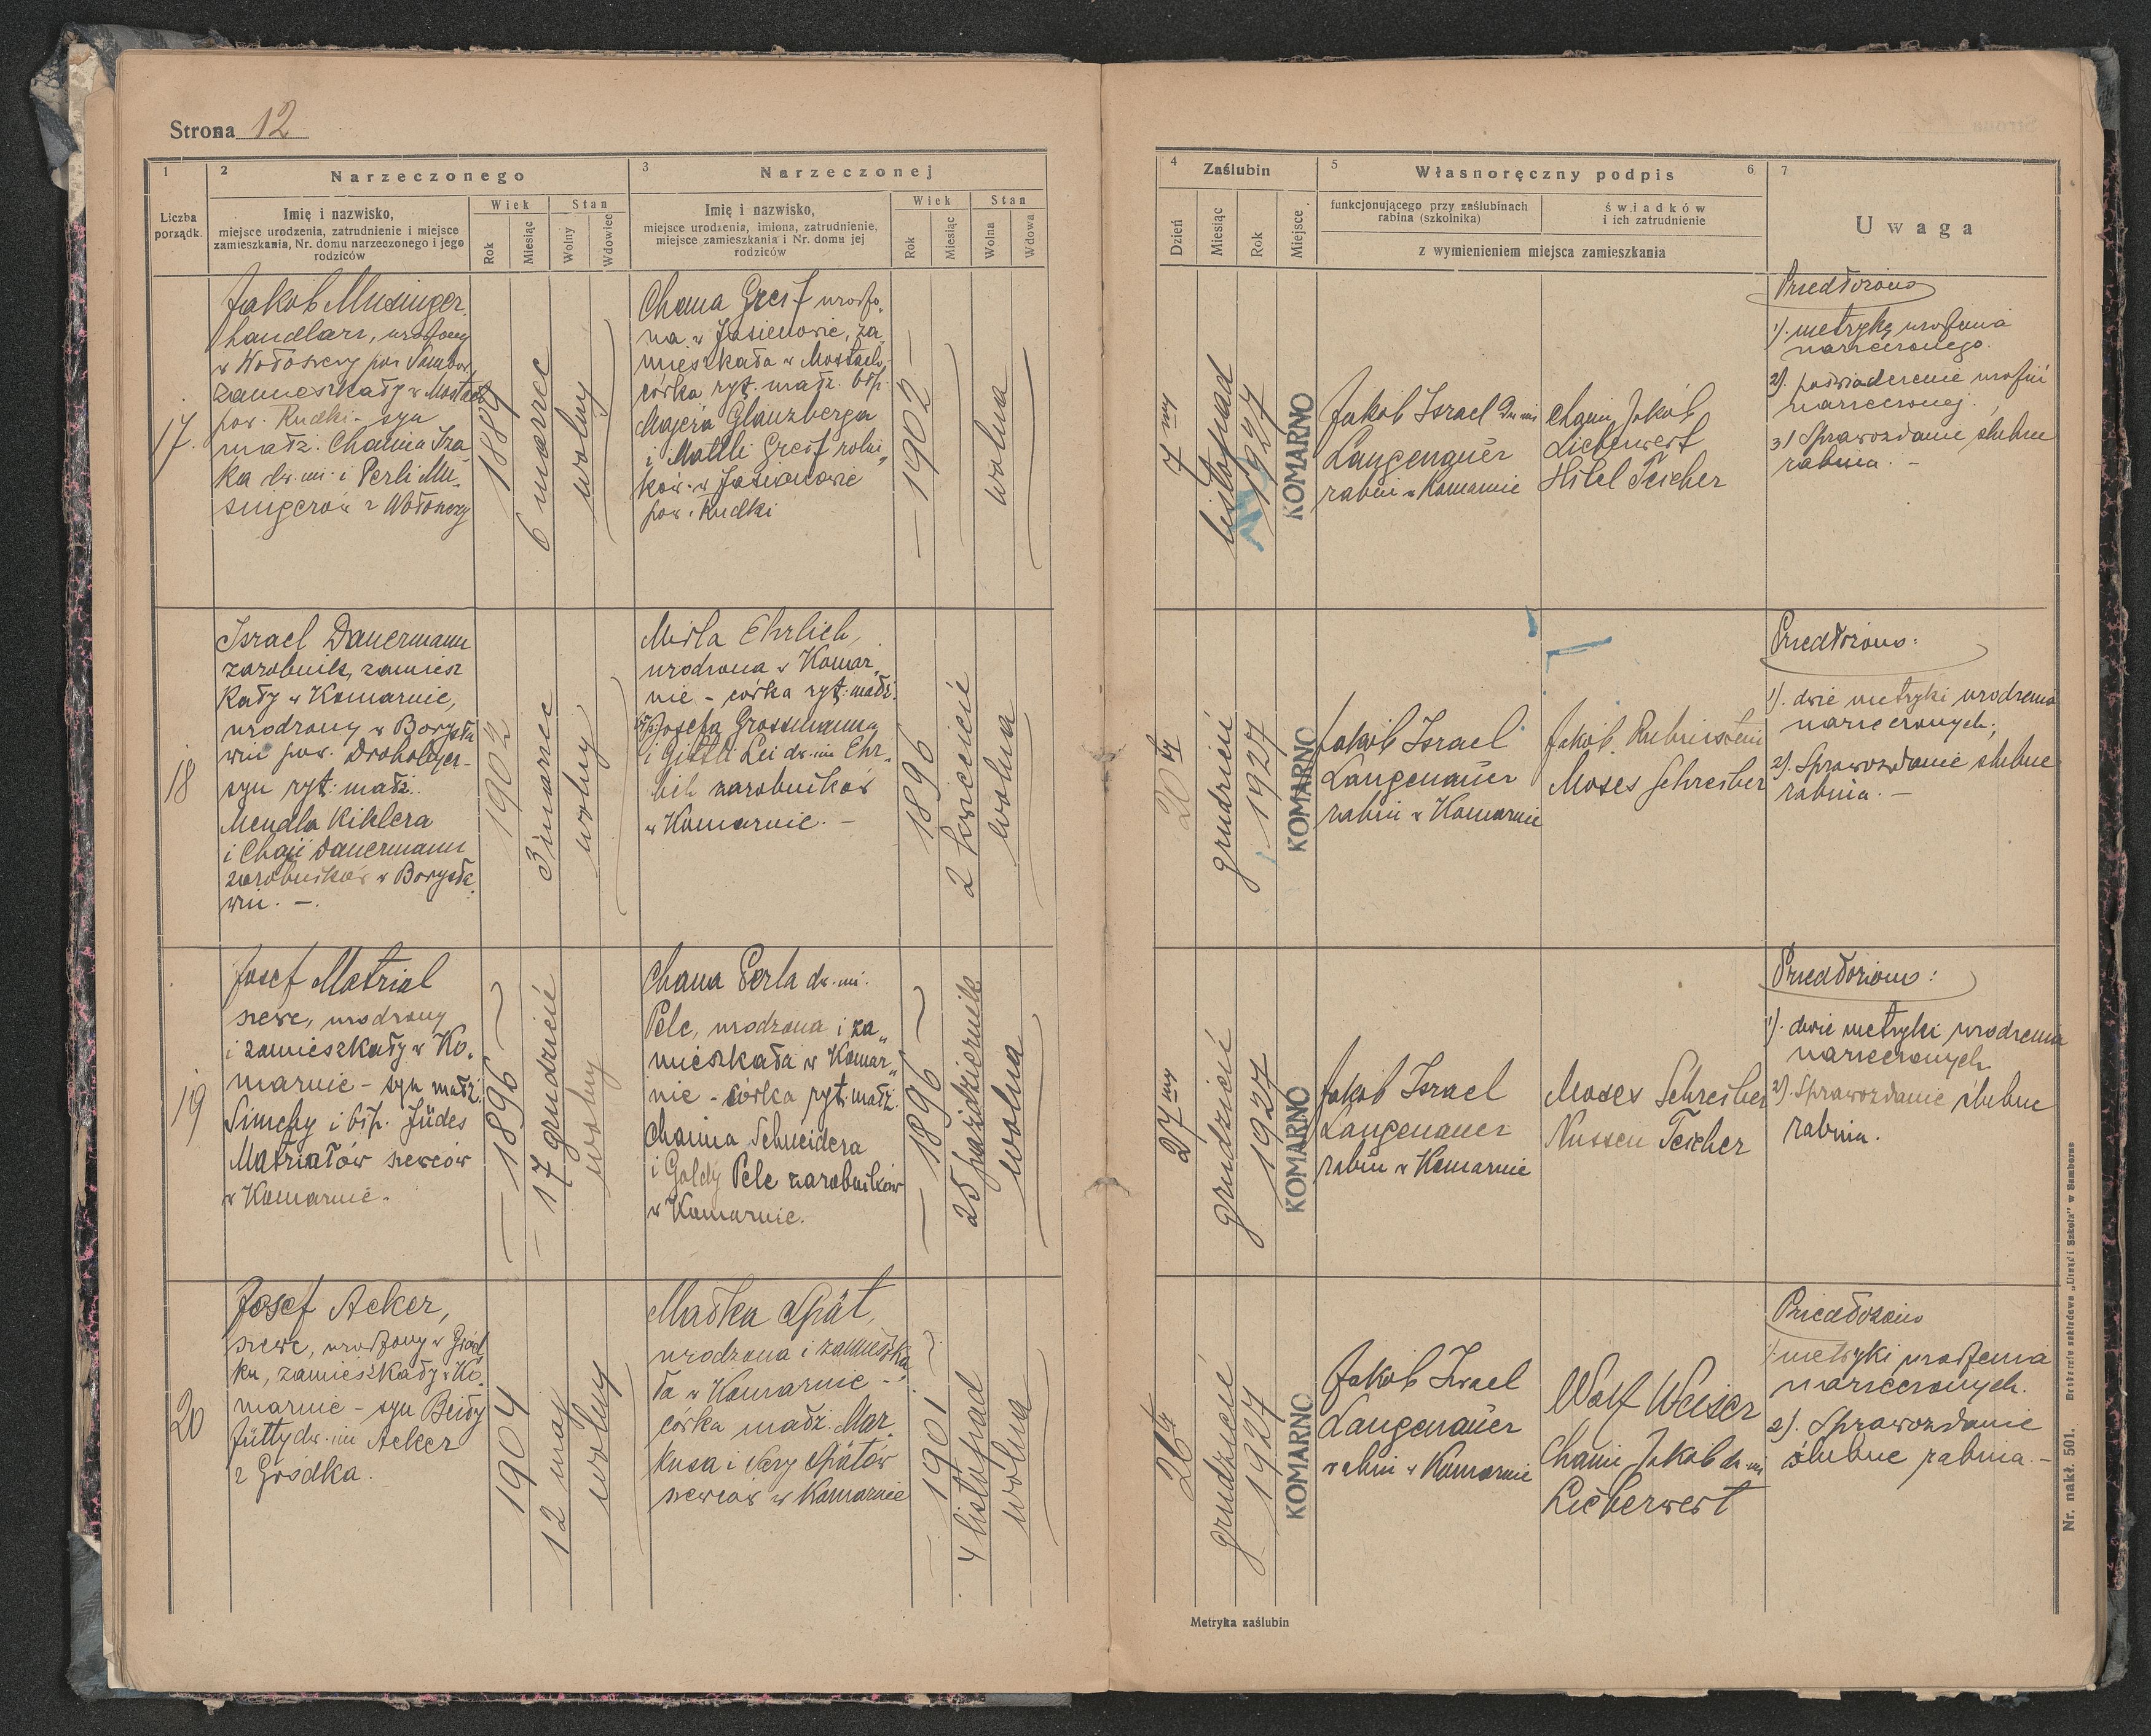 Strona 12
1
2
Narzeczonego
3
Narzeczonej
Liczba
porządk.
Imię i nazwisko,
miejsce urodzenia, zatrudnienie i miejsce
zamieszkania, Nr. domu narzeczonego i jego
rodziców
Wiek
Rok
Miesiąc
Stan
Wolny
Wdowiec
Imię i nazwisko,
miejsce urodzenia, imiona, zatrudnienie,
miejsce zamieszkania i Nr. domu jej
rodziców
Wiek
Rok
Miesiąc
Stan
Wolna
Wdowa
4
Zaślubin
Dzień
Miesiąc
Rok
Miejsce
5
Własnoręczny podpis
6
funkcjonującego przy zaślubinach
rabina (szkolnika)
świadków
i ich zatrudnienie
z wymienieniem miejsca zamieszkania
7
Uwaga
17.
Jakob Musinger
handlarz, urodzony
w Wołoszczy pow. Sambor,
zamieszkały w Mostach
pow. Rudki - syn
małż. Chaima Iza
ka dw. im. i Perli Mu
singerów z Wołoszczy
1889
6 marzec
wolny
Chana Greif urodzo„
na w Jasienowie, za
mieszkała w Mostach
córka ryt. małż. błp.
Majera Glanzberga
i Mattli Greif rolni„
ków w
pow. Rudki
1902
wolna
7 my
listopad
1927
KOMARNO
Jakob Israel dw im
Langenauer
rabin w Komarnie
Chaim Jakób
Lieberwert
Hilel Teicher
Przedłożono
1). metrykę urodzenia
narzeczonego.
2). poświadczenie urodzin
narzeczonej.
3) Sprawozdanie ślubne
rabina. -
18
Israel Dauermann
zarobnik, zamiesz
kały w Komarnie,
urodzony w Borysła
wiu pow. Drohobycz -
syn ryt. małż.
Mendla Kihlera
i Chaji Dauermann
zarobników w Borysła
wiu. -.
1902
3 marzec
wolny
Mirla Ehrlich,
urodzona w Komar„
nie - córka ryt. małż.
błp. Josefa Grossmanna
i Gittli Lei dw. im Ehr„
lich zarobników
w Komarnie. -
1896
2 kwiecień
wolna
20 ty
grudzień
1927
KOMARNO
Jakób Israel
Langenauer
rabin w Komarnie
Jakób Rubinstein
Moses Schreiber
Przedłożono:
1). dwie metryki urodzenia
narzeczonych;
2). Sprawozdanie ślubne
rabina. -
19
Josef Matrial
szewc, urodzony
i zamieszkały w Ko„
marnie - syn małż.
Simchy i błp. Jüdes
Matriałów szewców
w Komarnie.
1896
17 grudzień
wolny
Chana Perla dw. im.
Pelc, urodzona i za„
mieszkała w Komar„
nie - córka ryt. małż.
Chaima Schneidera
i Goldy Pelc zarobników
w Komarnie.
1896
25 październik
wolna
27 my
grudzień
1927
KOMARNO
Jakób Israel
Langenauer
rabin w Komarnie
Moses Schreiber
Nussen Teicher
Przedłożono:
1). dwie metryki urodzenia
narzeczonych
2). Sprawozdanie ślubne
rabina.
20
Josef Acker,
szewc, urodzony w Gród
ku, zamieszkały w Ko„
marnie - syn Beili
Jütty dw. im Acker
z Gródka.
1904
12 maj
wolny
Małka Spät,
urodzona i zamieszka
ła w Komarnie -
córka małż. Mar„
kusa i Sary Spätów
szewców w Komarnie
1901
4 listopad
wolna
26 ty
grudzień
1927
KOMARNO
Jakób Israel
Langenauer
rabin w Komarnie
Wolf Weiser
Chaim Jakób dw im
Lieberwert
Przedłożono
1) metryki urodzenia
narzeczonych.
2). Sprawozdanie
ślubne rabina. -
Metryka zaślubin
Nr. nakł. 501. Drukarnia nakładowa „Urząd i Szkoła" w Samborze